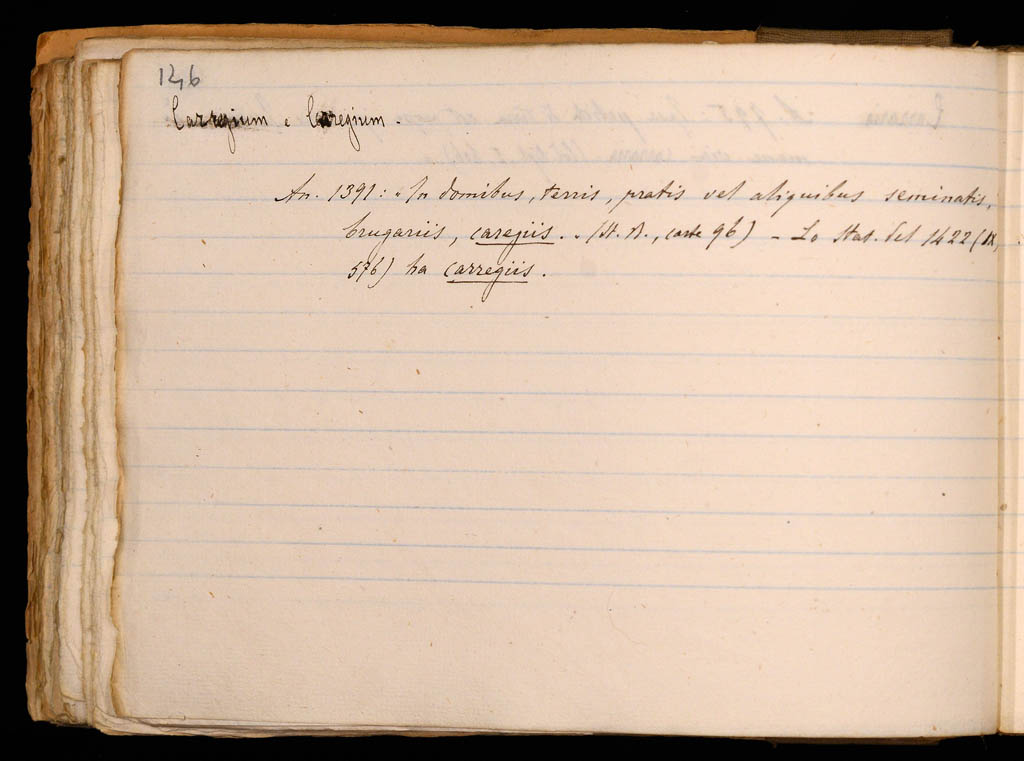 126
Carregium e Caregium.
An. 1391: "In domibus, terris, pratis vel aliquibus seminatis,
brugariis, caregiis." (St. A., carte 96) - Lo Stat. del 1422 (IX,
576) ha carregiis.